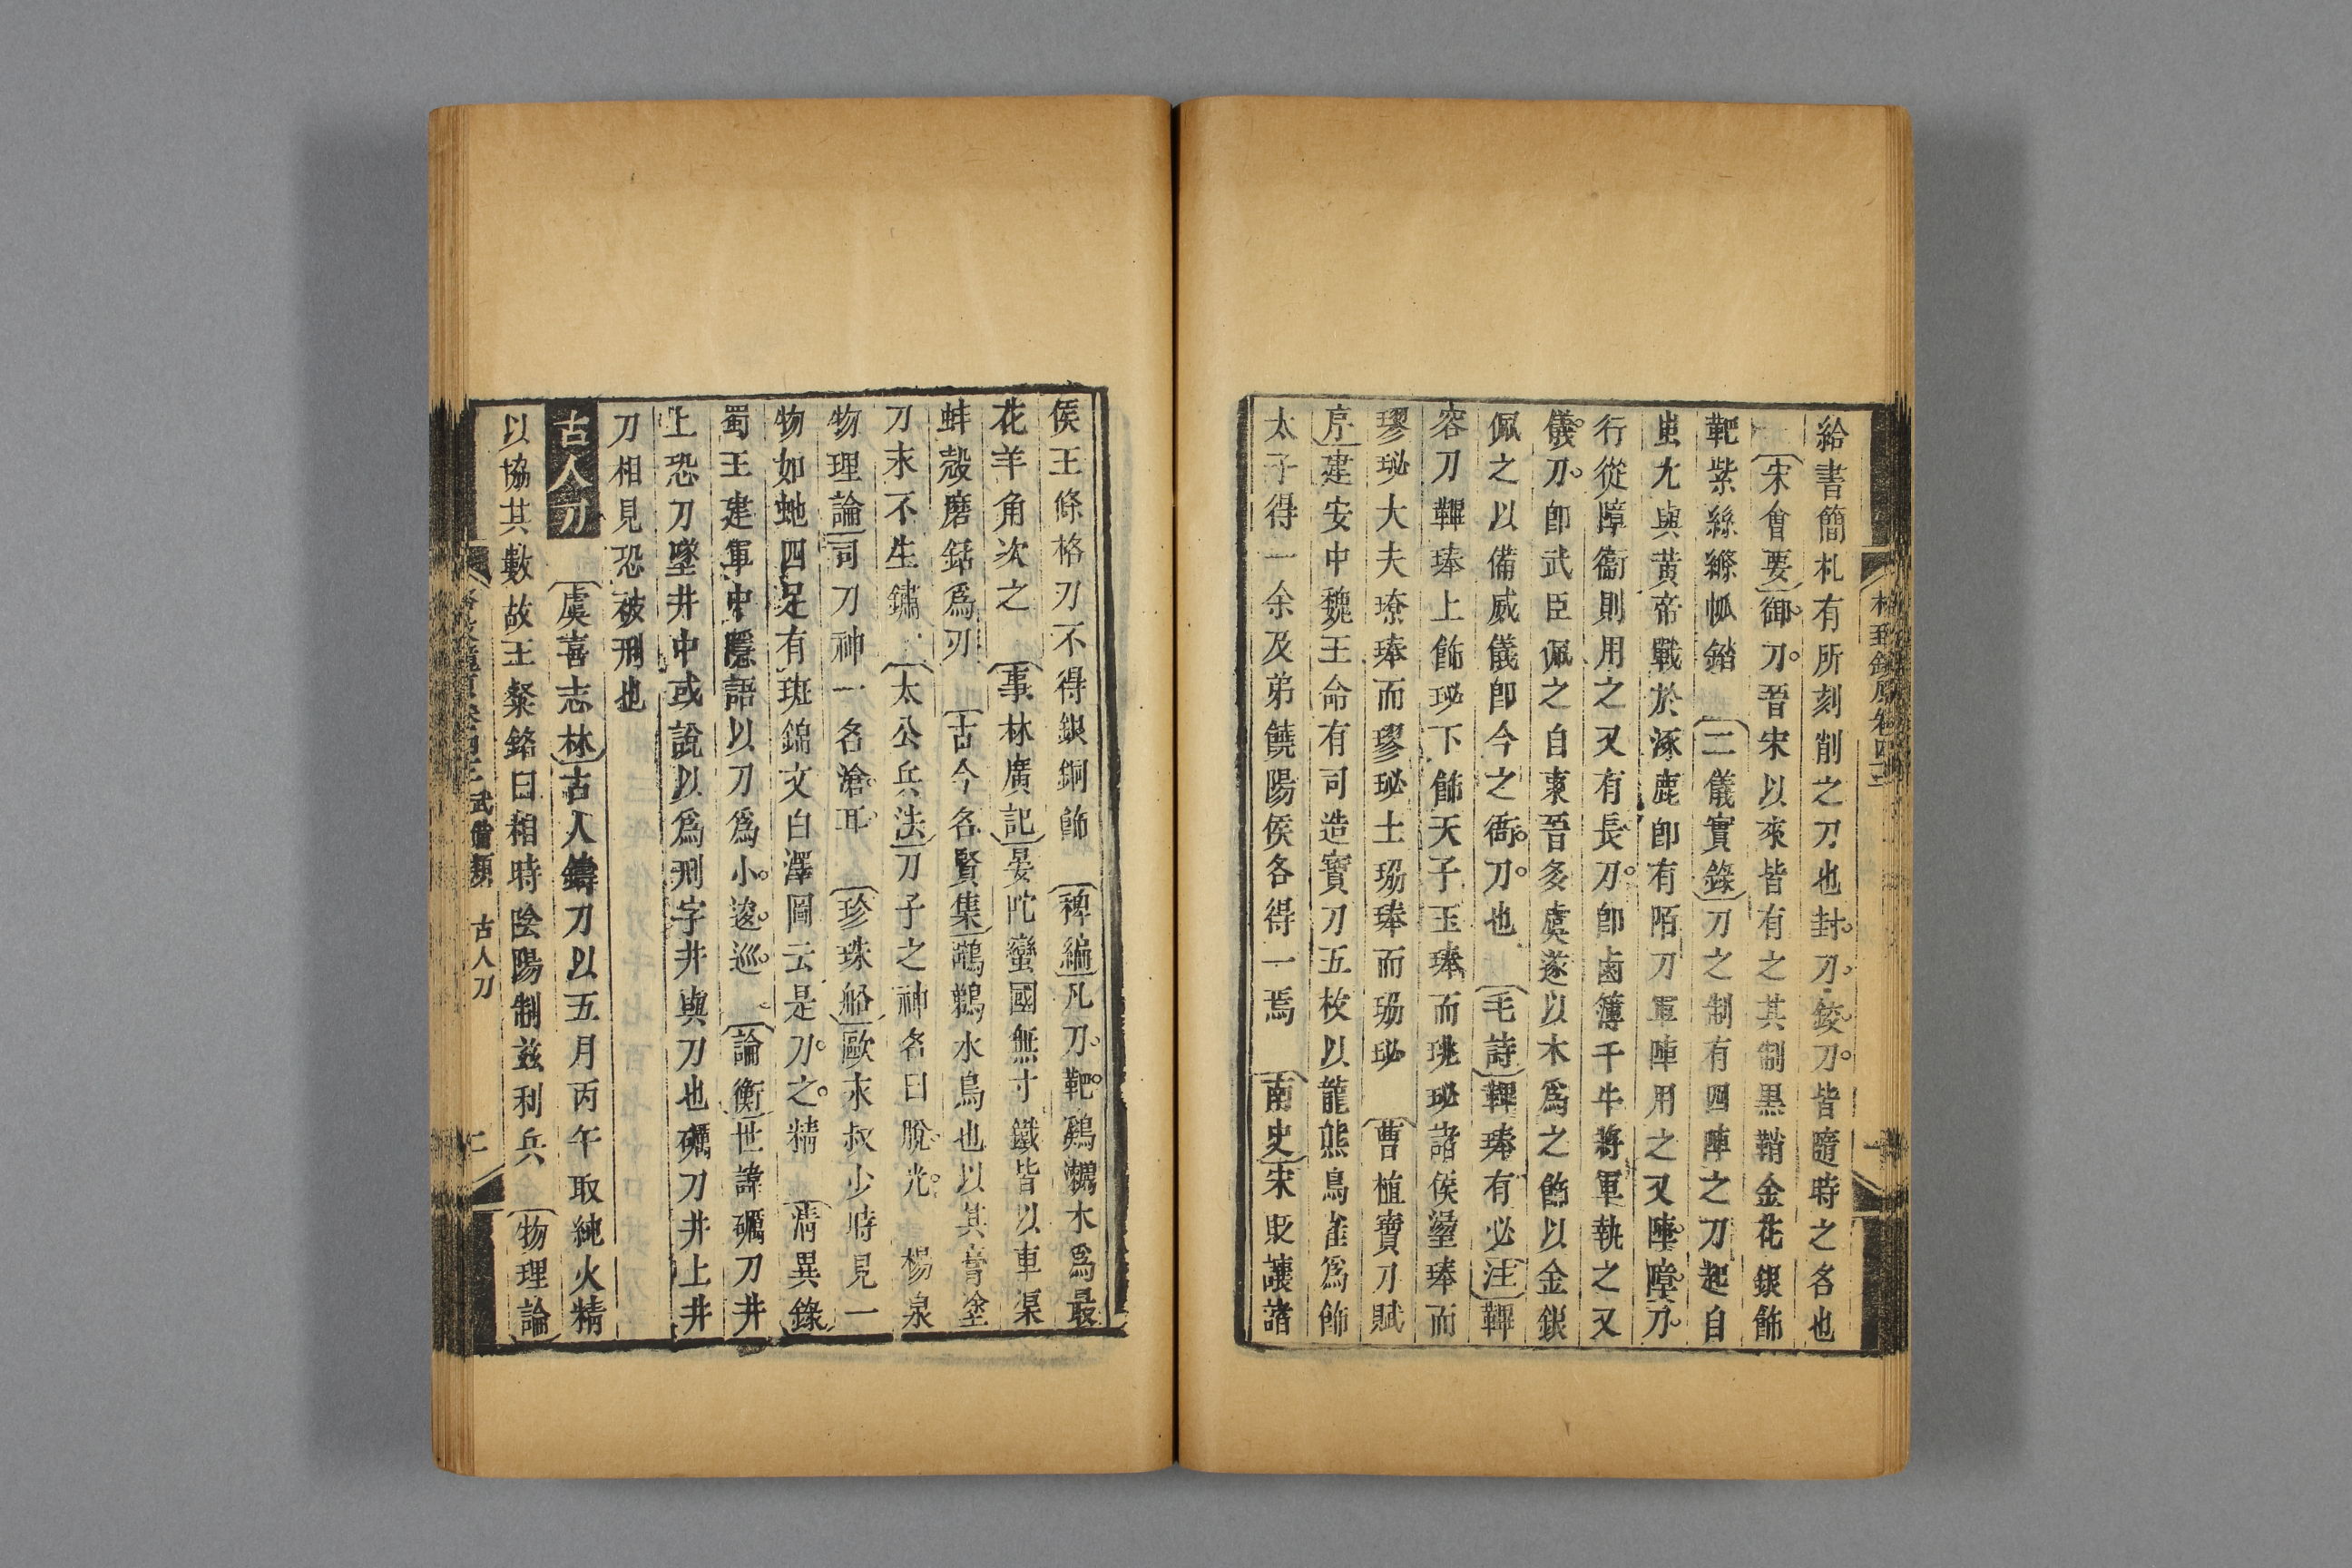 格致鏡原卷四十二
給書簡札有所刻削之刀也封刀鉸刀皆隨時之名也
宋會要御刀晉宋以來皆有之其制黑鞘金花銀飾
靶紫絲縧帉錔　二儀實錄刀之制有四陣之刀起自
蚩尤與黃帝戰於涿鹿卽有陌刀軍陣用之又陣障刀
行從障衞則用之又有長刀卽鹵簿千牛將軍執之又
儀刀卽武臣佩之自東晉多虞遂以木爲之飾以金銀
佩之以備威儀卽今之衙刀也　毛詩鞸琫有必注鞸
容刀鞸琫上飾珌下飾天子玉琫而珧珌諸侯璗琫而
璆珌大夫璙琫而璆珌士珕琫而珕珌　曹植寶刀賦
序建安中魏王命有司造寶刀五枚以龍熊鳥雀爲飾
太子得一余及弟饒陽侯各得一焉　南史宋廢讓諸
侯王條格刀不得銀銅飾　稗編凡刀靶鸂鶒木爲最
花羊角次之　事林廣記晏陀蠻國無寸鐵皆以車渠
蚌殼磨銛爲刃　古今名賢集鸊鷉水鳥也以其膏塗
刀末不生鏽　太公兵法刀子之神名曰脫光　楊泉
物理論司刀神一名滄耳　珍珠船歐末叔少時見一
物如虵四足有斑錦文白澤圖云是刀之精　淸異錄
蜀王建軍中隱語以刀爲小逡巡　論衡世諱礪刀井
上恐刀墜井中或說以爲刑字井與刀也礪刀井上井
刀相見恐被刑也
古人刀　虞喜志林古人鑄刀以五月丙午取純火精
以協其數故王粲銘曰相時陰陽制玆利兵　物理論
武備類　古人刀　二